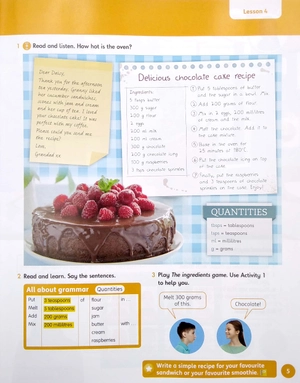 Lesson 4
1 Read and listen. How hot is the oven?
Dear Daisy,
Thank you for the afternoon
tea yesterday. Granny liked
her cucumber sandwiches,
scones with jam and cream
and her cup of tea. I loved
your chocolate cake! It was
perfect with my coffee.
Please could you send me
the recipe?
Love,
Grandad xx
Delicious chocolate cake recipe
Ingredients:
5 tbsps butter
300 g sugar
200 g flour
2 eggs
200 ml milk
200 ml cream
300 g chocolate
200 g chocolate icing
150 g raspberries
3 tsps chocolate sprinkles
1 Put 5 tablespoons of butter
and the sugar in a bowl. Mix.
2 Add 200 grams of flour.
3 Mix in 2 eggs, 200 millilitres
of cream and the milk.
4 Melt the chocolate. Add it to
the cake mixture.
5 Bake in the oven for
at 180°C.
6 Put the chocolate icing on top
of the cake.
7 Finally, put the raspberries
and 3 teaspoons of chocolate
sprinkles on the cake. Enjoy!
QUANTITIES
tbsps = tablespoons
tsps = teaspoons
ml = millilitres
g = grams
2 Read and learn. Say the sentences.
All about grammar Quantities
Put 3 teaspoons of flour in ...
Melt 5 tablespoons sugar
Add 200 grams jam
Mix 200 millilitres butter with ...
cream
raspberries
3 Play The ingredients game. Use Activity 1
to help you.
Melt 300 grams
of this.
Chocolate!
Write a simple recipe for your favourite
sandwich or your favourite smoothie.
5